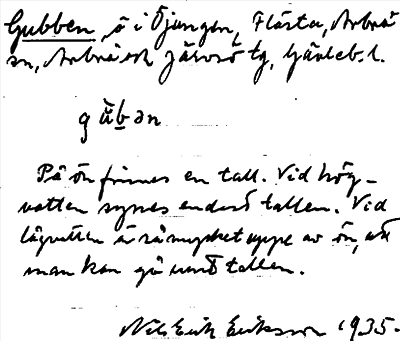 Gubben, ö i Djungen, Flästa, Arbrå
sn, Arbrå och Järvsö tg, Gävleb. l.
gùbən
På ön finnes en tall. Vid hög-
vatten synes endast tallen. Vid
lågvatten är så mycket uppe av ön, att
man kan gå runt tallen.
Nils Erik Eriksson 1935.